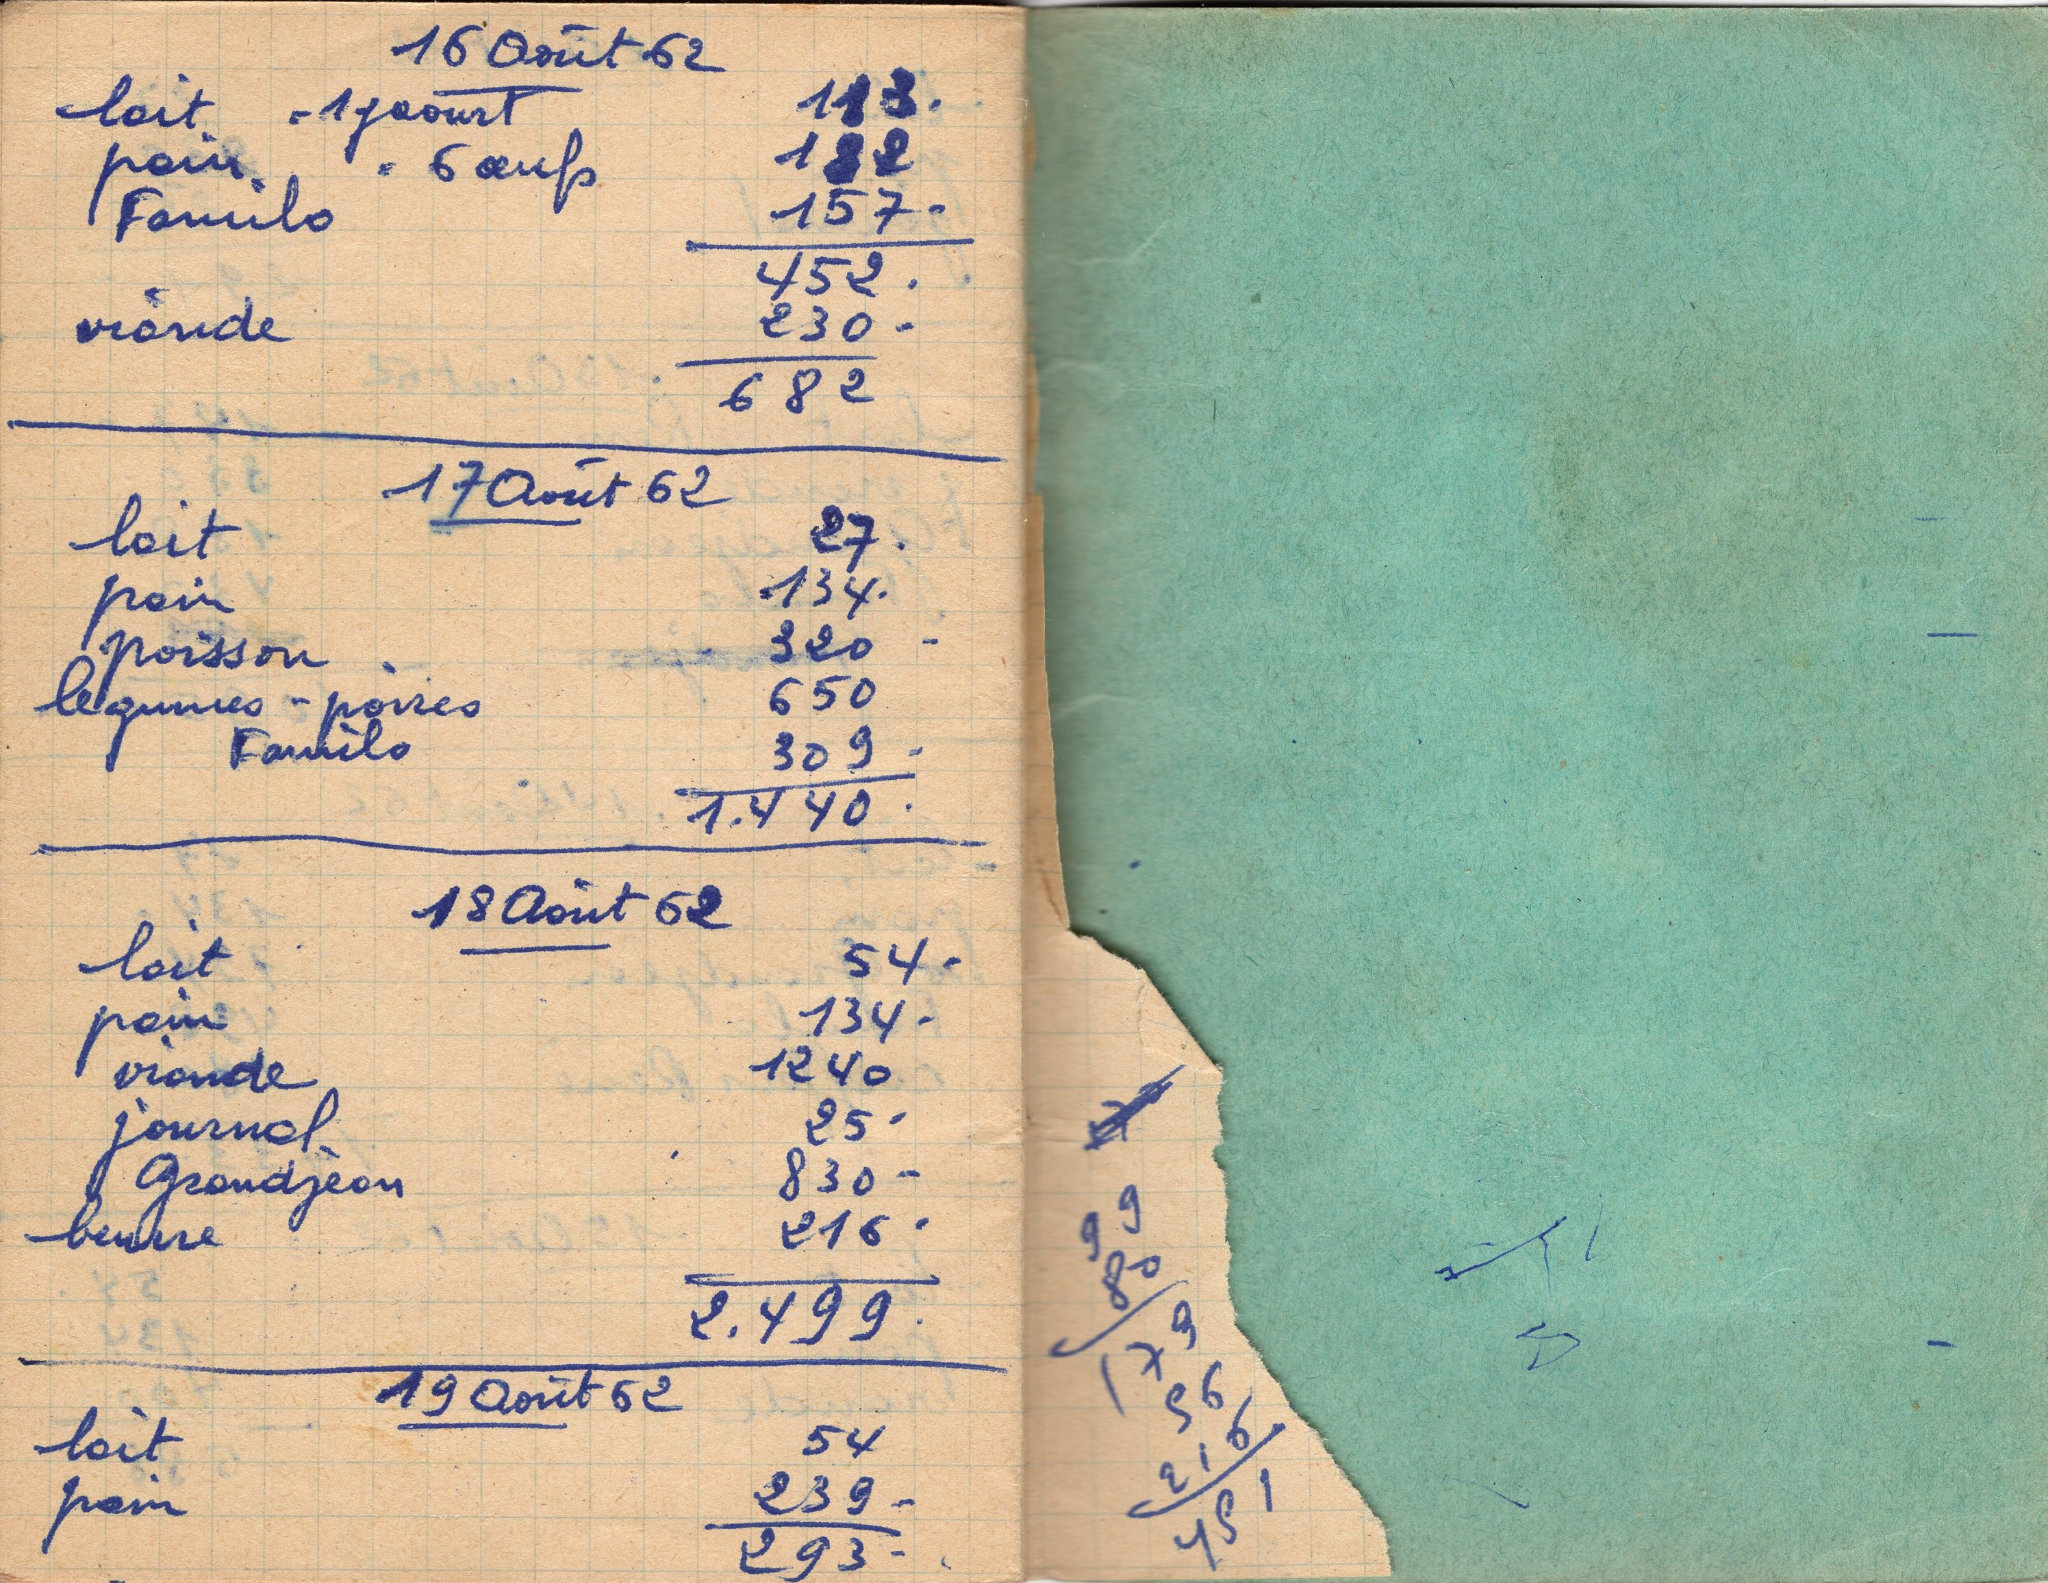 16 Août 62
lait - 1 yaourt 113.
pain - 6 œufs 182
Familo 157-
452.
viande 230-
682
17 Août 62
lait 27.
pain 134.
poisson 320-
légumes - poires 650
Familo 309-
1.440.
18 Août 62
lait 54-
pain 134-
viande 1240
journal 25-
Grandjean 830-
beurre 216.
2.499.
19 Août 62
lait 54
pain 239-
293-
99
80
179
56
216
451